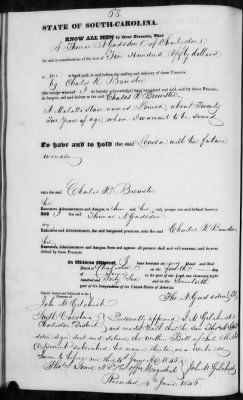 STATE OF SOUTH-CAROLINA.
KNOW ALL MEN by these Presents, That
I Thomas N Gadsden of Charleston
for and in consideration of the sum of Five Hundred & fifty dollars
to me in hand paid, at and before the sealing and delivery of these Presents,
by Charles R. Brewster
(the receipt whereof I do hereby acknowledge) have bargained and sold, and by these Presents,
do bargain, sell and deliver to the said Charles R Brewster
A Mulatto Slave named Louisa, about Twenty
Two Years of age, whom I warrant to be sound
To have and to hold the said Louisa with her future
increase
unto the said Charles R Brewster
his
Executors, Administrators and Assigns, to him and his only proper use and behoof forever.
And I the said Thomas N Gadsden
my
Executors and Administrators, the said bargained premises, unto the said Charles R Brewster
his
Executors, Administrators and Assigns, from and against all persons shall and will warrant, and forever
defend by these Presents.
In Witness Whereof, I have hereunto set my Hand and Seal
Dated at Charleston on the
day of June in the year of our Lord one thousand eight
hundred and Forty Six and in the Seventieth
year of the Independence of the United States of America.
Signed, Sealed and Delivered in the Presence of
Th. N Gadsden
John M. Gilchrist
South Carolina
Charleston District
Personally appeared J. M. Gilchrist
and made Oath that he saw Thos N Gadsden
sign seal and deliver the within Bill of Sale & that
Deponent subscribed his name thereto, as a witness
Sworn to before me this 4th June A.D. 1846
John M. Gilchrist
Recorded 4th June 1846